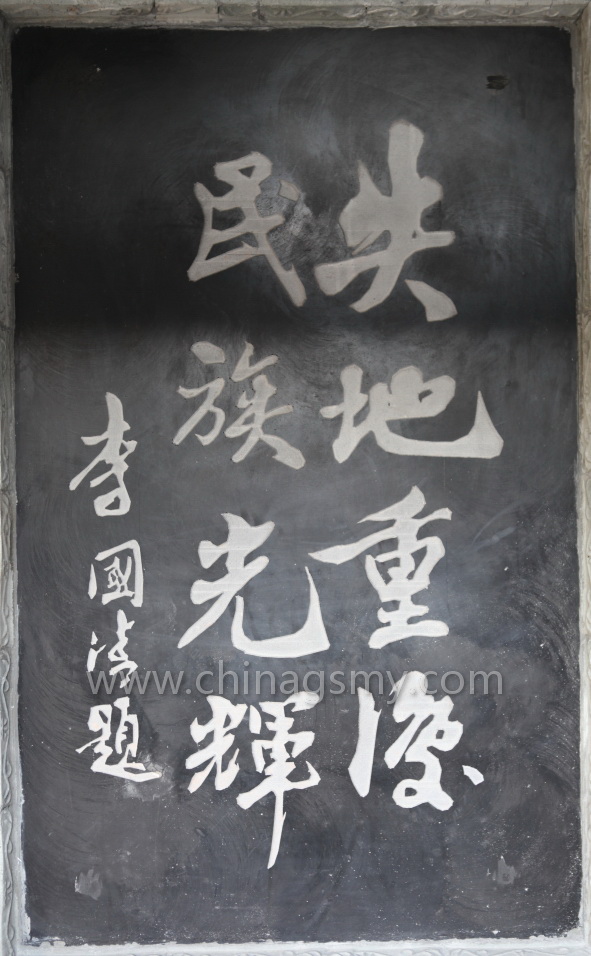 失地重復
民族光輝
李國清題
www.chinagsmy.com